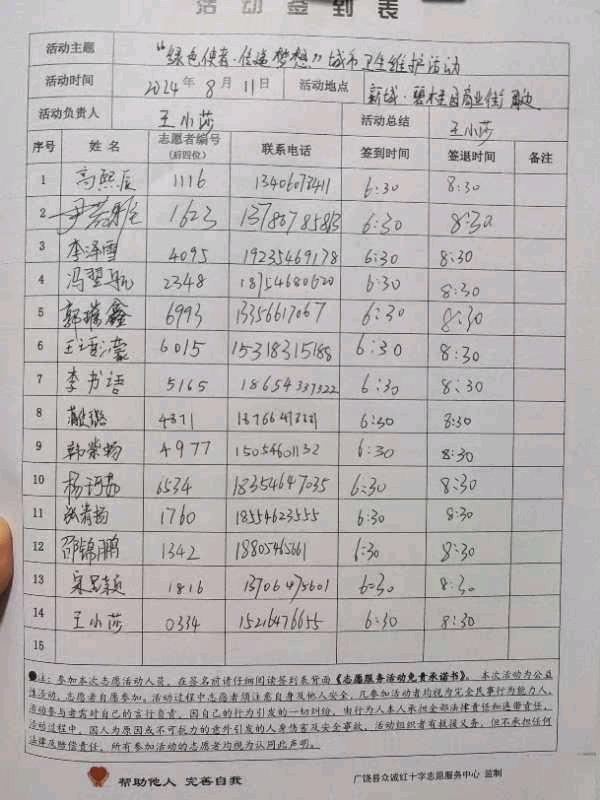 活动签到表
活动主题 “绿色使者·传递梦想”城市卫生维护活动
活动时间 2024年8月11日 活动地点 新城·碧桂园商业街周边
活动负责人 王小莎 活动总结 王小莎
序号 姓名 志愿者编号(后四位) 联系电话 签到时间 签退时间 备注
1 高熙辰 1116 6:30 8:30
2 1623 6:30 8:30
3 李泽雪 4095 19235469178 6:30 8:30
4 冯翌航 2348 18754680620 6:30 8:30
5 郭瑞鑫 6993 13356617067 6:30 8:30
6 6015 15318315188 6:30 8:30
7 李书语 5165 18654337322 6:30 8:30
8 6:30 8:30
9 韩紫杨 4977 15054601132 6:30 8:30
10 6534 18354647035 6:30 8:30
11 1760 18554623555 6:30 8:30
12 邵锦鹏 1342 6:30 8:30
13 1816 13706475601 6:30 8:30
14 王小莎 0334 15216476655 6:30 8:30
15
●注：参加本次志愿活动人员，在签名前请仔细阅读签到表背面《志愿服务活动免责承诺书》。本次活动为公益
性活动，志愿者自愿参加。活动过程中志愿者须注意自身及他人安全，凡参加活动者均视为完全民事行为能力人，
活动参与者需对自己的言行负责，因自己的行为引发的一切纠纷，由行为人本人承担全部法律责任和连带责任。
活动过程中，因人为原因或不可抗力的意外引发的人身伤害及安全事故，活动组织者有救援义务，但不承担任何
法律及赔偿责任，所有参加活动的志愿者均视为认同此声明。
帮助他人 完善自我 广饶县众诚红十字志愿服务中心 监制